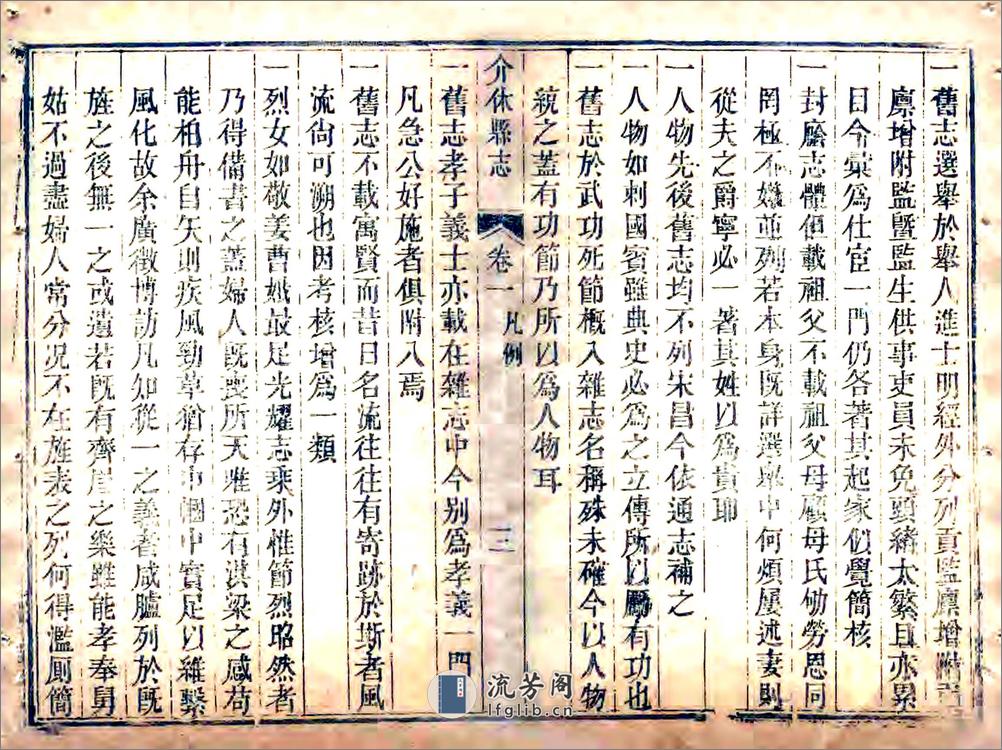 一舊志選舉於舉人進士明經外分列貢監廪增附
廪增附監暨監生供事吏員未免頭緒太繁且亦累
日今彙爲仕宦一門仍各著其起家似覺簡核
一封廕志體但載祖父不載祖父母顧母氏劬勞恩同
罔極不嫌並列若本身既詳選舉中何煩屢述妻則
從夫之爵寧必一一著其姓以爲貴耶
一人物先後舊志均不列宋昌今依通志補之
一人物如刺國賓雖典史必爲之立傳所以勵有功也
一舊志於武功死節概入雜志名稱殊未確今以人物
統之蓋有功節乃所以爲人物耳
介休縣志
卷一
凡例
三
一舊志孝子義士亦載在雜志中今别爲孝義一門
凡急公好施者俱附入焉
一舊志不載寓賢而昔日名流往往有寄跡於斯者風
流尙可溯也因考核增爲一類
一烈女如敬姜曹娥最足光耀志乘外惟節烈昭然者
乃得備書之蓋婦人既喪所天雖恐有淇梁之感苟
能柏舟自矢則疾風勁草猶存巾幗中實足以維繫
風化故余廣徵博訪凡如從一之義者咸臚列於既
旌之後無一之或遺若既有齊眉之樂雖能孝奉舅
姑不過盡婦人常分况不在旌表之列何得濫厠簡
流芳阁
lfglib.cn